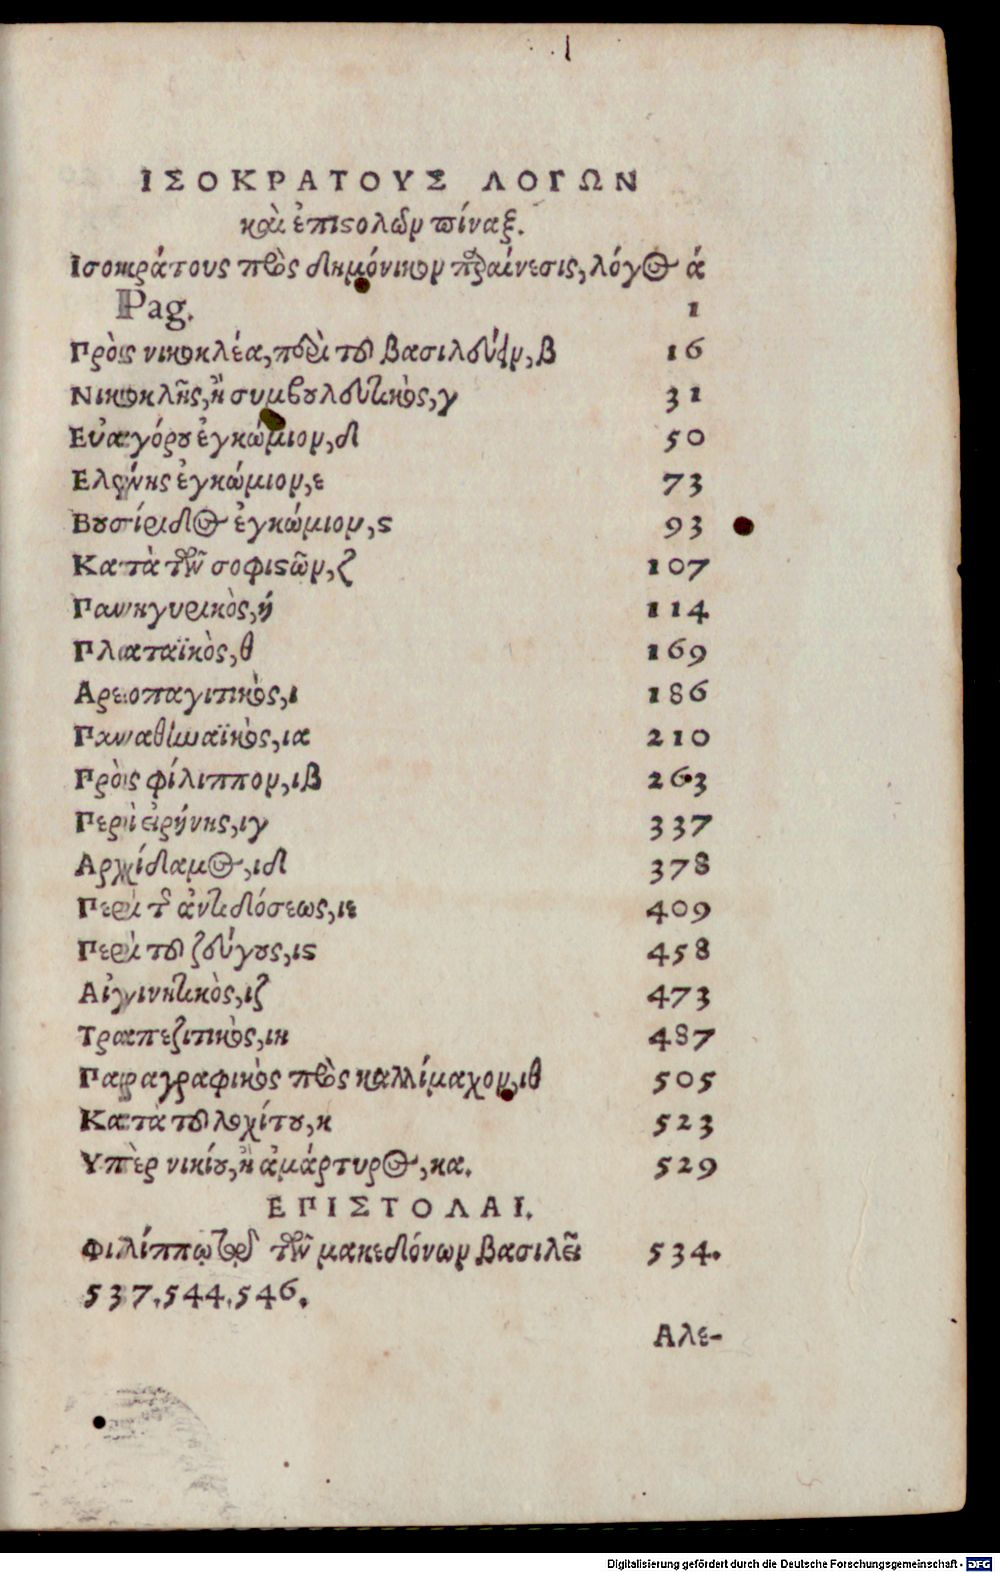 ΙΣΟΚΡΑΤΟΥΣ ΛΟΓΩΝ
καὶ ἐπιϛολῶν πίναξ.
Ισοκράτους πρὸς δημόνικον παραίνεσις, λόγος ά
Pag. 1
Πρὸς νικοκλέα, περὶ τοῦ βασιλεύειν, β 16
Νικοκλῆς, ἢ συμβουλευτικὸς, γ 31
Εὐαγόρου ἐγκώμιον, δ 50
Ελένης ἐγκώμιον, ε 73
Βουσίριδος ἐγκώμιον, ϛ 93
Κατὰ τῶν σοφιϛῶν, ζ 107
Πανηγυρικὸς, ή 114
Πλαταϊκὸς, θ 169
Αρειοπαγιτικὸς, ι 186
Παναθηναϊκὸς, ια 210
Πρὸς φίλιππον, ιβ 263
Περὶ εἰρήνης, ιγ 337
Αρχίδαμος, ιδ 378
Περὶ τῆς ἀντιδόσεως, ιε 409
Περὶ τοῦ ζεύγους, ιϛ 458
Αἰγινητικὸς, ιζ 473
Τραπεζιτικὸς, ιη 487
Παραγραφικὸς πρὸς καλλίμαχον, ιθ 505
Κατὰ τοῦ λοχίτου, κ 523
Υπὲρ νικίου, ἢ ἀμάρτυρος, κα. 529
ΕΠΙΣΤΟΛΑΙ.
Φιλίππῳ τῷ τῶν μακεδόνων βασιλεῖ 534.
537. 544. 546.
Αλε-
Digitalisierung gefördert durch die Deutsche Forschungsgemeinschaft - DFG